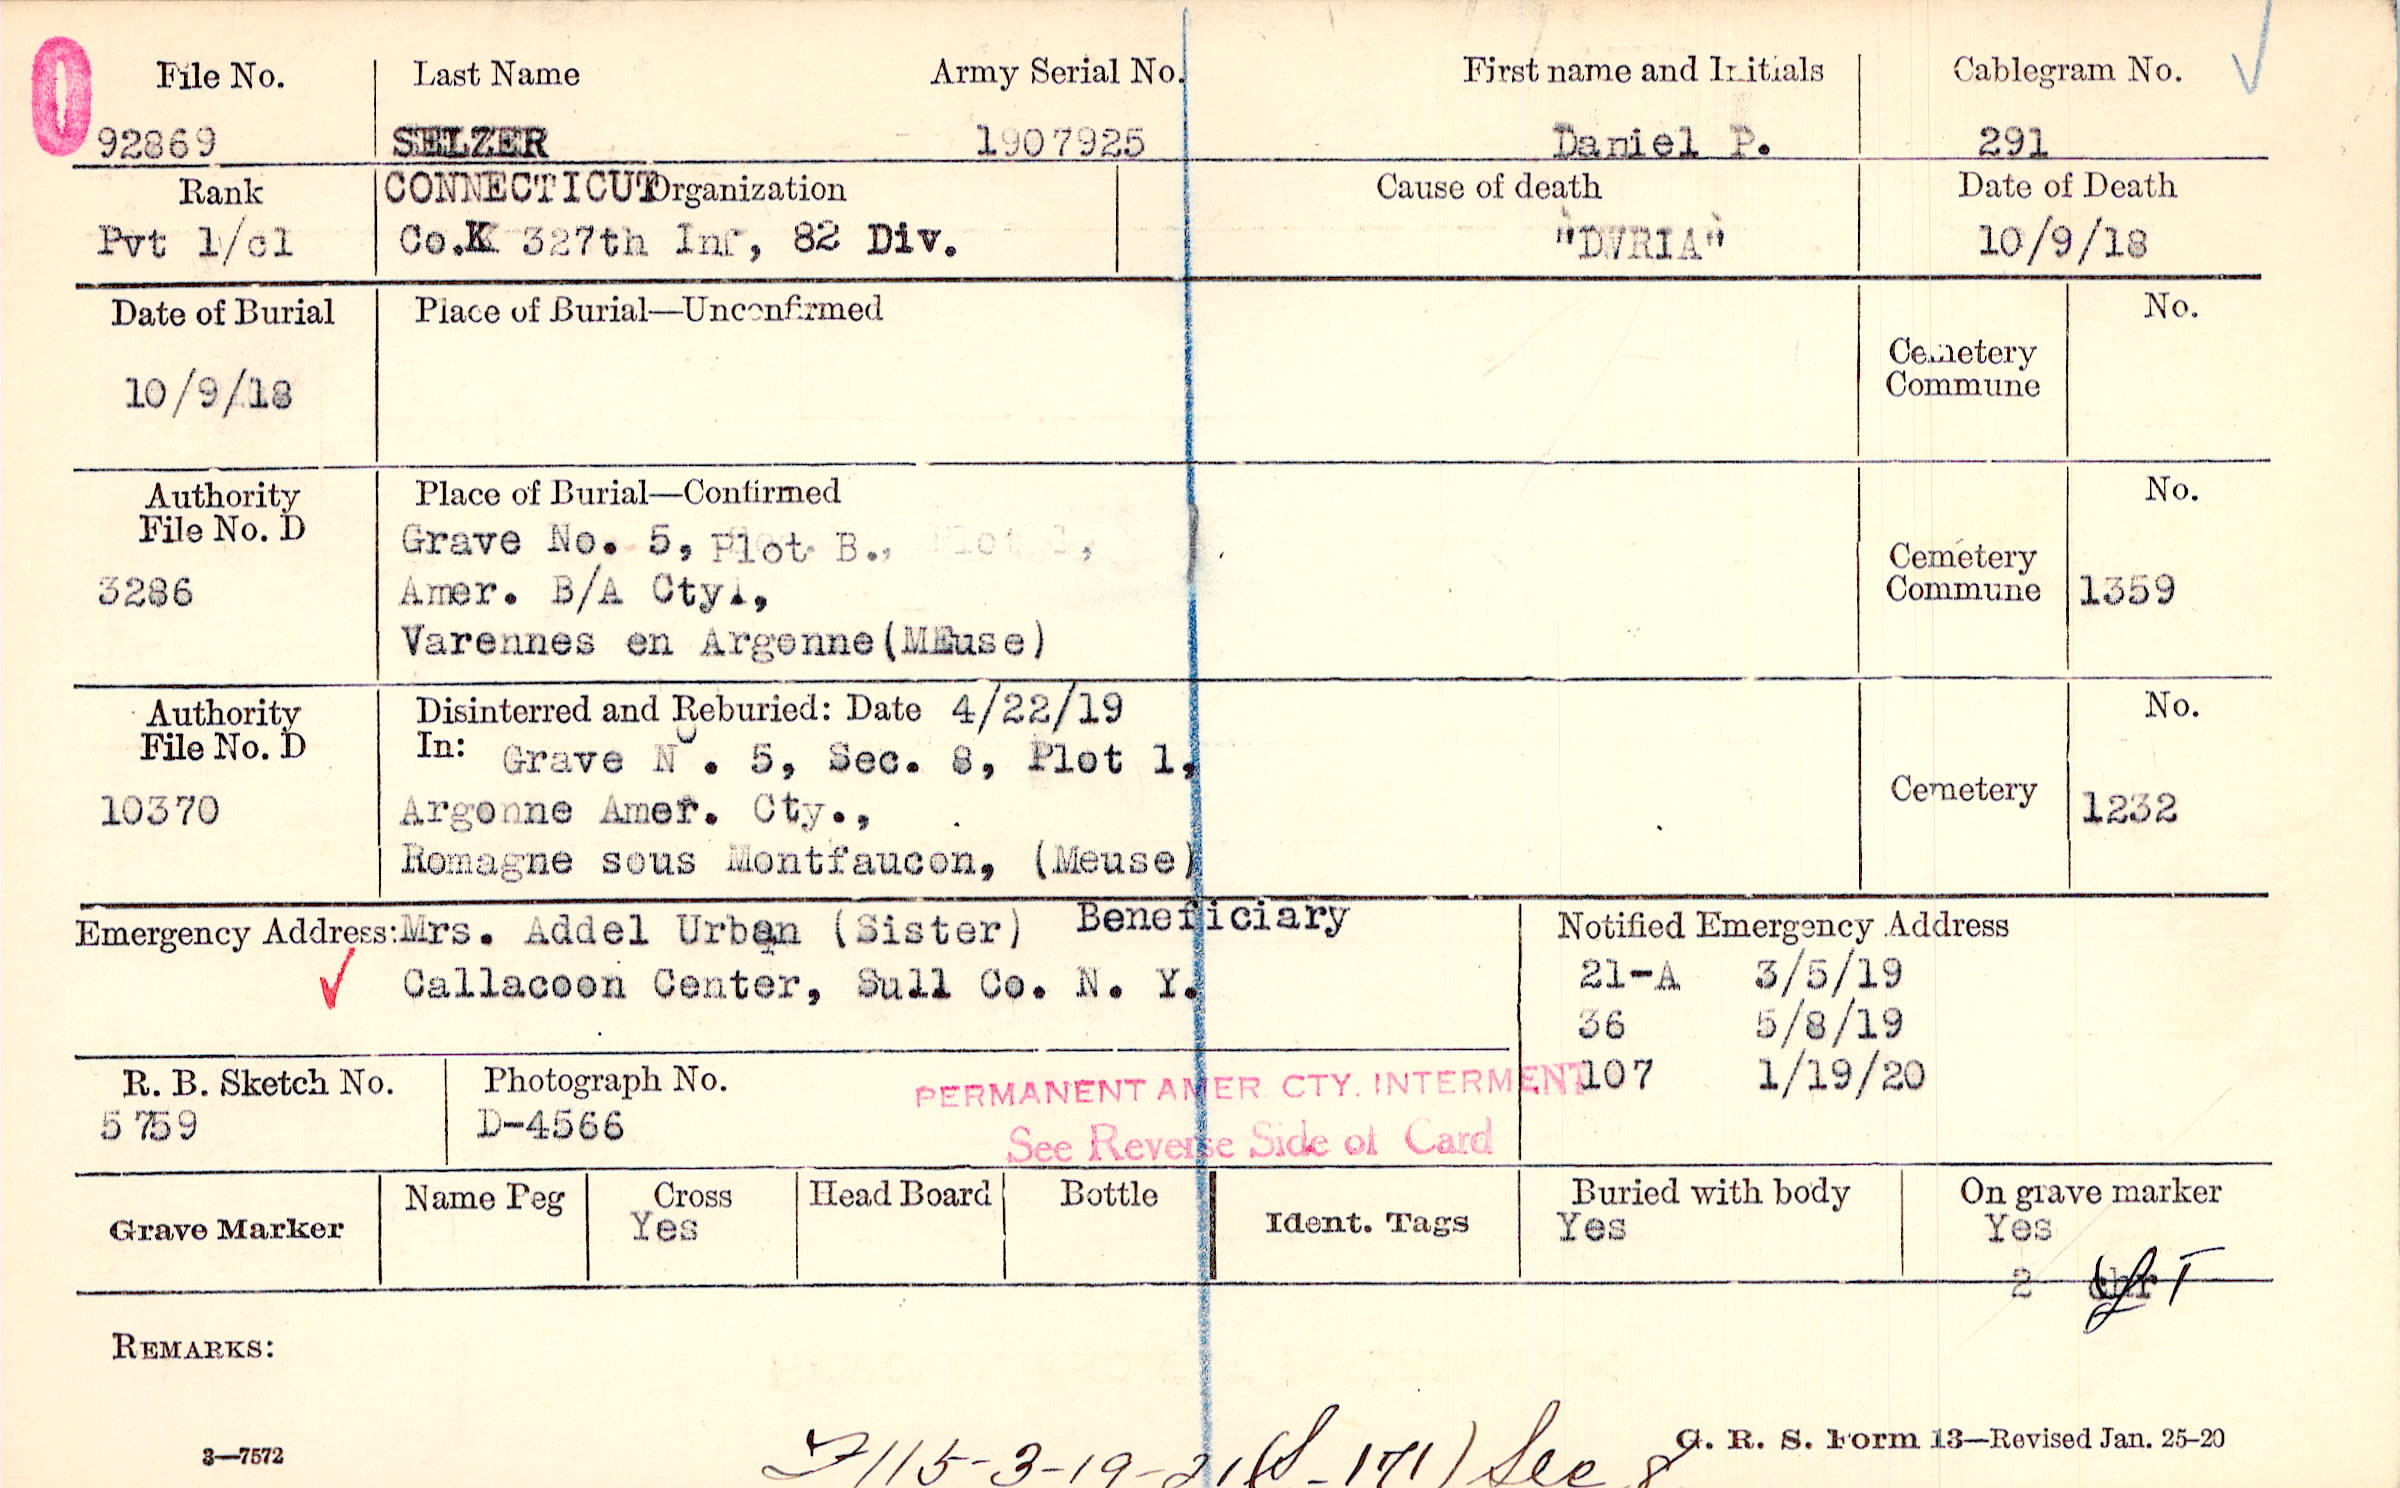 File No. Last Name Army Serial No. First name and Initials Cablegram No.
92869 SELZER 1907925 Daniel P. 291
Rank CONNECTICUT Organization Cause of death Date of Death
Pvt 1/cl Co.K 327th Inf, 82 Div. "DWRIA" 10/9/18
Date of Burial Place of Burial—Unconfirmed No.
Cemetery
Commune
10/9/18
Authority Place of Burial—Confirmed No.
File No. D Grave No. 5, Plot B.,
Cemetery
3286 Amer. B/A Cty1, Commune 1359
Varennes en Argonne(MEuse)
Authority Disinterred and Reburied: Date 4/22/19 No.
File No. D In: Grave No. 5, Sec. 8, Plot 1,
Cemetery
10370 Argonne Amer. Cty., 1232
Romagne sous Montfaucon, (Meuse)
Emergency Address: Mrs. Addel Urban (Sister) Beneficiary Notified Emergency Address
Callacoon Center, Sull Co. N. Y. 21-A 3/5/19
36 5/8/19
R. B. Sketch No. Photograph No. PERMANENT AMER. CTY. INTERMENT 107 1/19/20
5759 D-4566 See Reverse Side of Card
Grave Marker Name Peg Cross Head Board Bottle Ident. Tags Buried with body On grave marker
Yes Yes Yes
2
REMARKS:
G. R. S. Form 13—Revised Jan. 25-20
3—7572 115-3-19-21(S-171) See